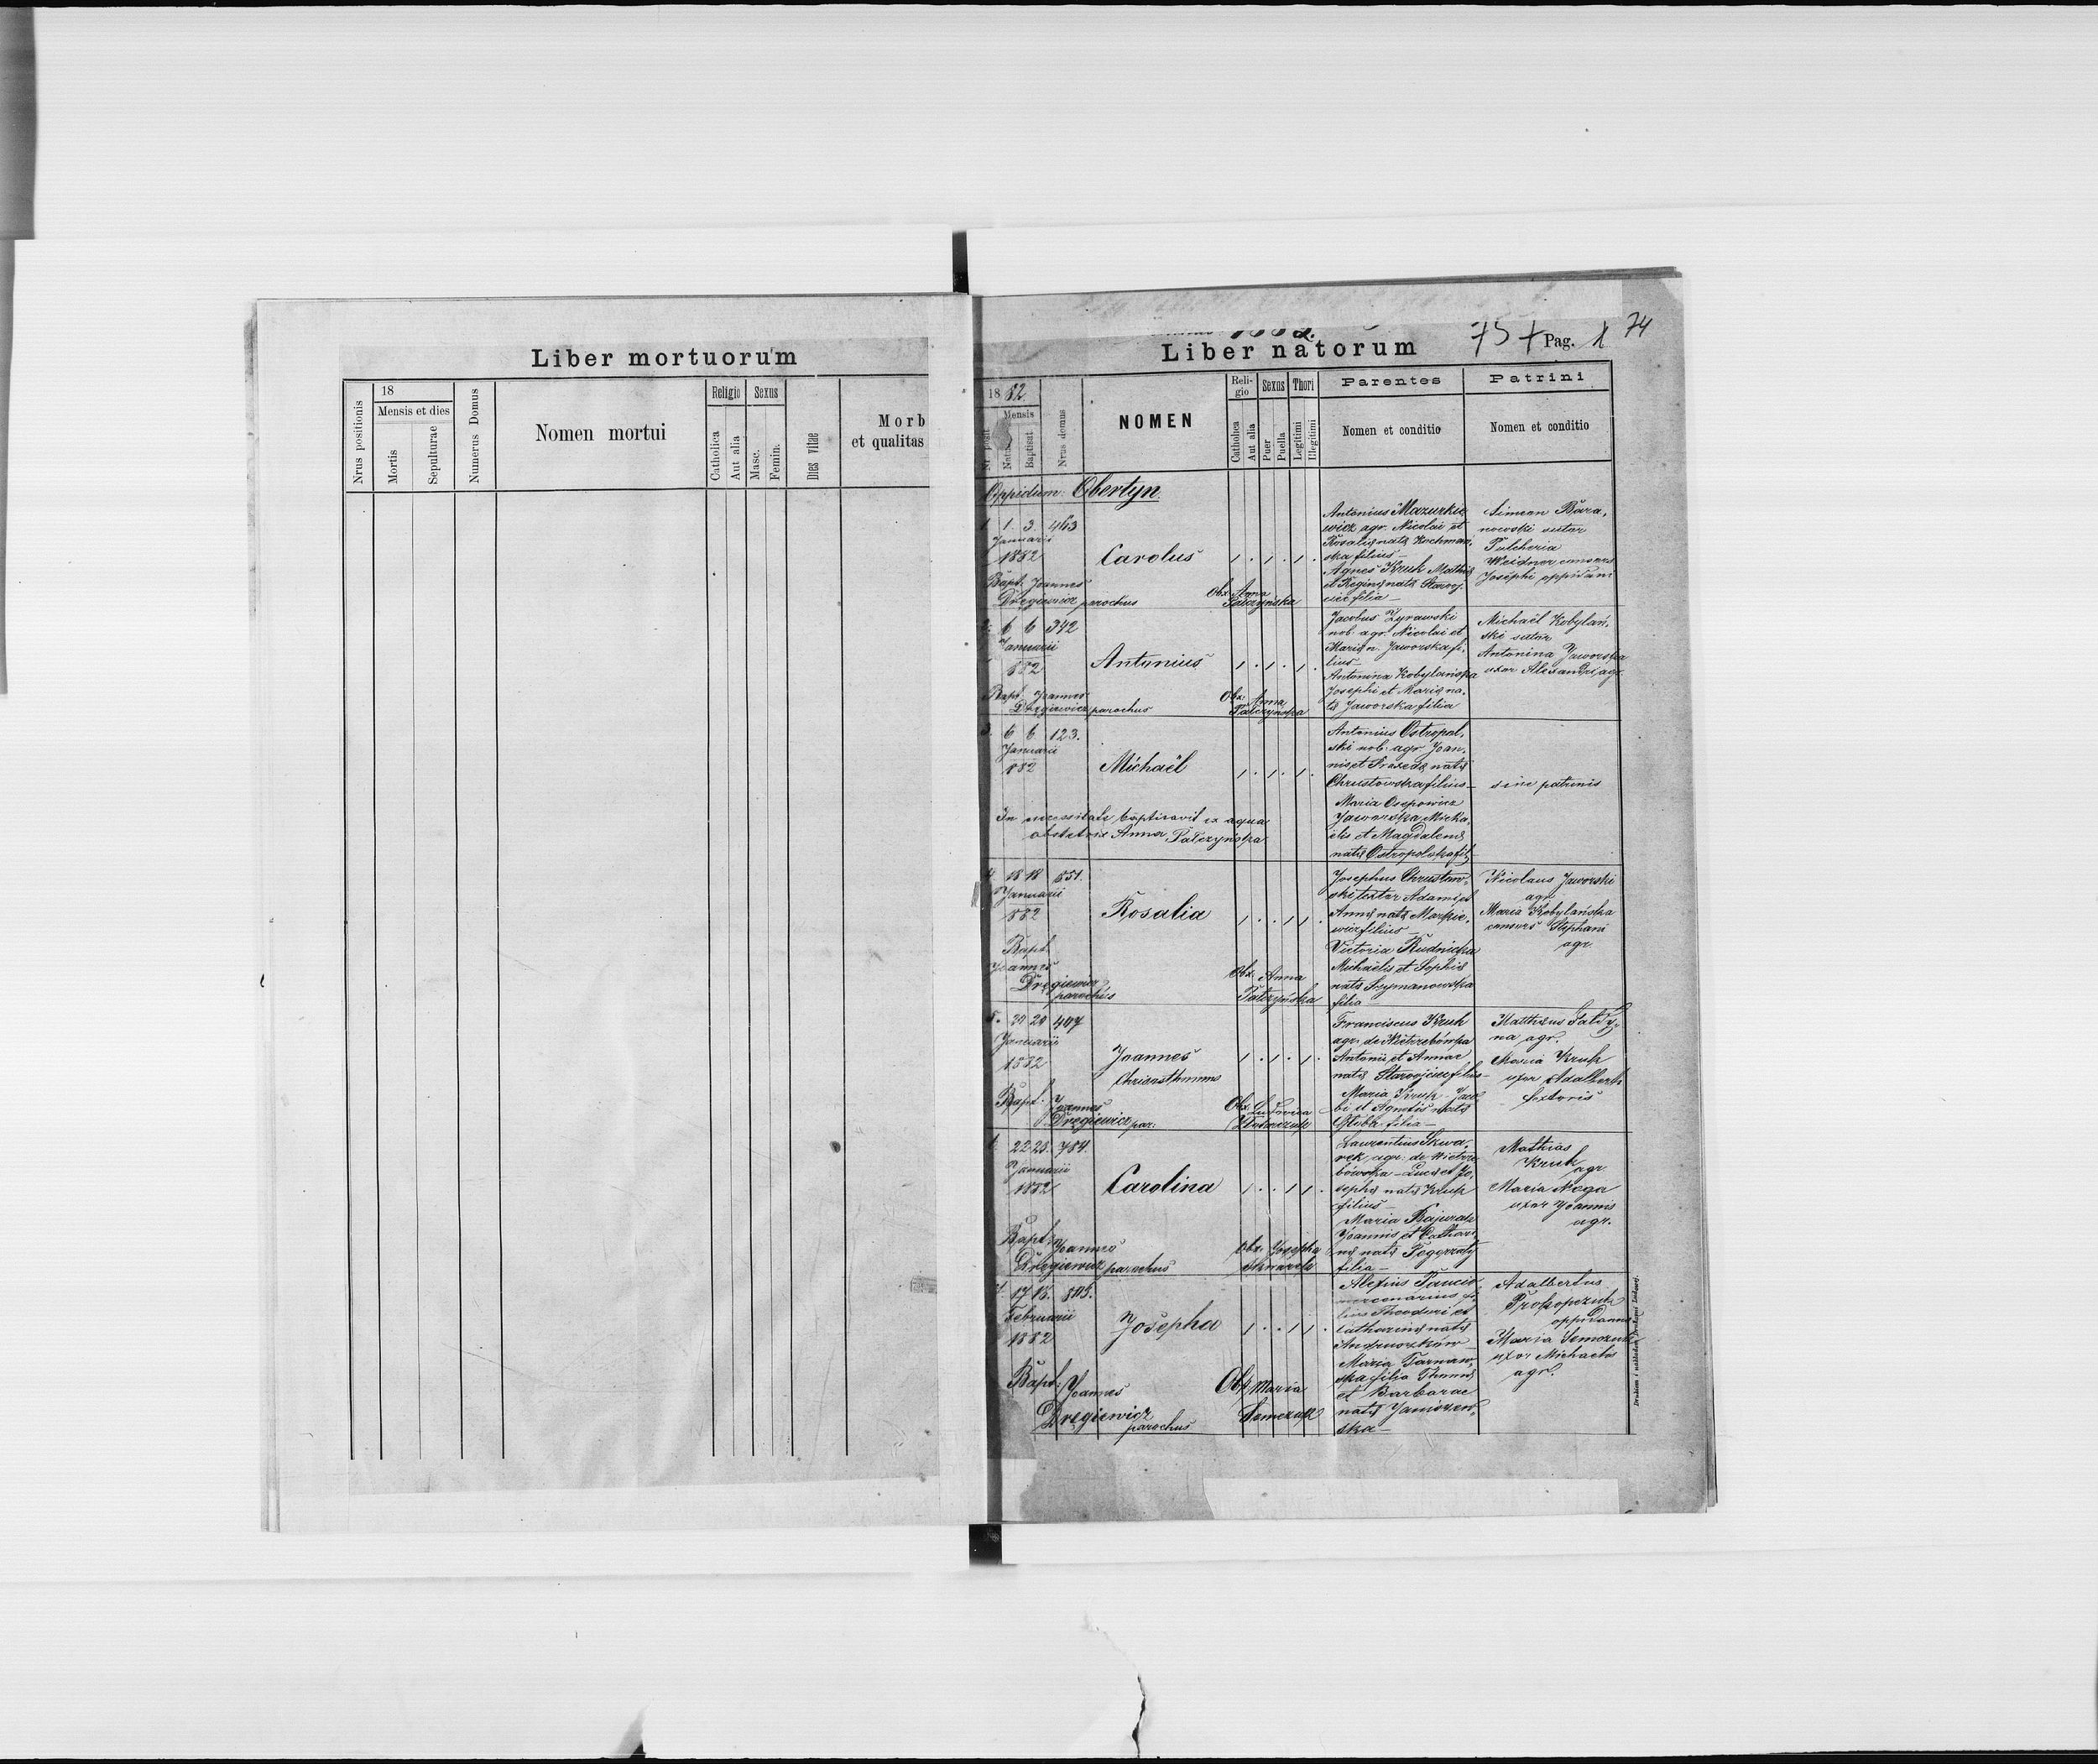 Liber mortuorum
Nrus positionis
18
Mensis et dies
Mortis
Sepulturae
Numerus Domus
Nomen mortui
Religio
Catholica
Aut alia
Sexus
Masc.
Femin.
Dies vitae
Morb
et qualitas
Liber natorum
Pag. 1
74
18 82
Mensis
Baptisat
Nrus domus
NOMEN
Religio
Catholica
Aut alia
Sexus
Puer
Puella
Thori
Legitimi
Illegitimi
Parentes
Nomen et conditio
Patrini
Nomen et conditio
Oppidum: Obertyn
1 1. 3. 463
Januarii
1882
Carolus
1 . 1 . 1 .
Bapt. Joannes
Dręgiewicz parochus
Obx. Anna
Palczyńska
Antonius Mazurkie
wicz agr. Nicolai et
Rosalię natę Kochman,
ska filius
Agnes Kruk Mathię
et Reginę natę Staroj,
ciec filia
Simeon Bara,
nowski sutor
Pulcheria
Weidner consors
Josephi oppidani
2. 6 6 342
Januarii
882
Antonius
1 . 1 . 1 .
Bapt. Joannes
Dręgiewicz parochus
Obx. Anna
Palczyńska
Jacobus Żyrawski
nob. agr. Nicolai et
Marię n. Jaworska fi,
lius
Antonina Kobylańska
Josephi et Marię na,
tę Jaworska filia
Michaël Kobylań,
ski sutor
Antonina Jaworska
uxor Alexandri agr.
3. 6 6 123.
Januarii
882
Michaël
1 . 1 . 1 .
In necessitate baptisavit ex aqua
obstetrix Anna Palczyńska
Antonius Ostropol,
ski nob. agr. Joan,
nis et Praxedę natę
Chrustowska filius
Maria Osepowicz
Jaworska Micha,
ëlis et Magdalenę
natę Ostropolska fil,
sine patrinis
4. 18 18 851.
Januarii
882
Rosalia
1 . . 1 1 .
Bapt.
Joannes
Dręgiewicz
parochus
Obx. Anna
Palczyńska
Josephus Chrustow,
ski textor Adami et
Annę natę Markie,
wicz filius
Victoria Rudnicka
Michaëlis et Sophię
natę Szymanowska
filia
Nicolaus Jaworski
agr.
Maria Kobylańska
consors Stephani
agr.
5. 20 407
Januarii
1882
Joannes
1 . 1 . 1 .
Bapt. Joannes
Dręgiewicz par.
Obx. Ludovica
Franciscus Kruk
agr. de Wietrzbówka
Antonii et Annae
natę Starojciec filius
Maria Kruk Jaco,
bi et Agnetis natę
filia
na agr.
Maria Kruk
uxor Adalberti
textoris
6. 22 23. 784.
Januarii
1882
Carolina
1 . . 1 1 .
Bapt. Joannes
Dręgiewicz parochus
Obx. Josepha
Skwarek
Laurentius Skwa,
rek agr. de Wietrz
bówka Lucę et Jo,
sephę natę Kruk
filius
Maria Bajurak
Joannis et Cathari,
nę natę
filia
Mathias
Kruk
agr.
Maria Noga
uxor Joannis
agr.
7. 17 18.
Februarii
1882
Josepha
1 . . 1 1 .
Bapt. Joannes
Dręgiewicz
parochus
Obx. Maria
Semczuk
Alexius
mercenarius fi,
lius Theodori et
Catharinę natę
Maria Tarnaw,
ska filia Thomę
et Barbarae
natę Janiszew,
ska
Adalbertus
Prokopczuk
oppidanus
Maria Semczuk
uxor Michaelis
agr.